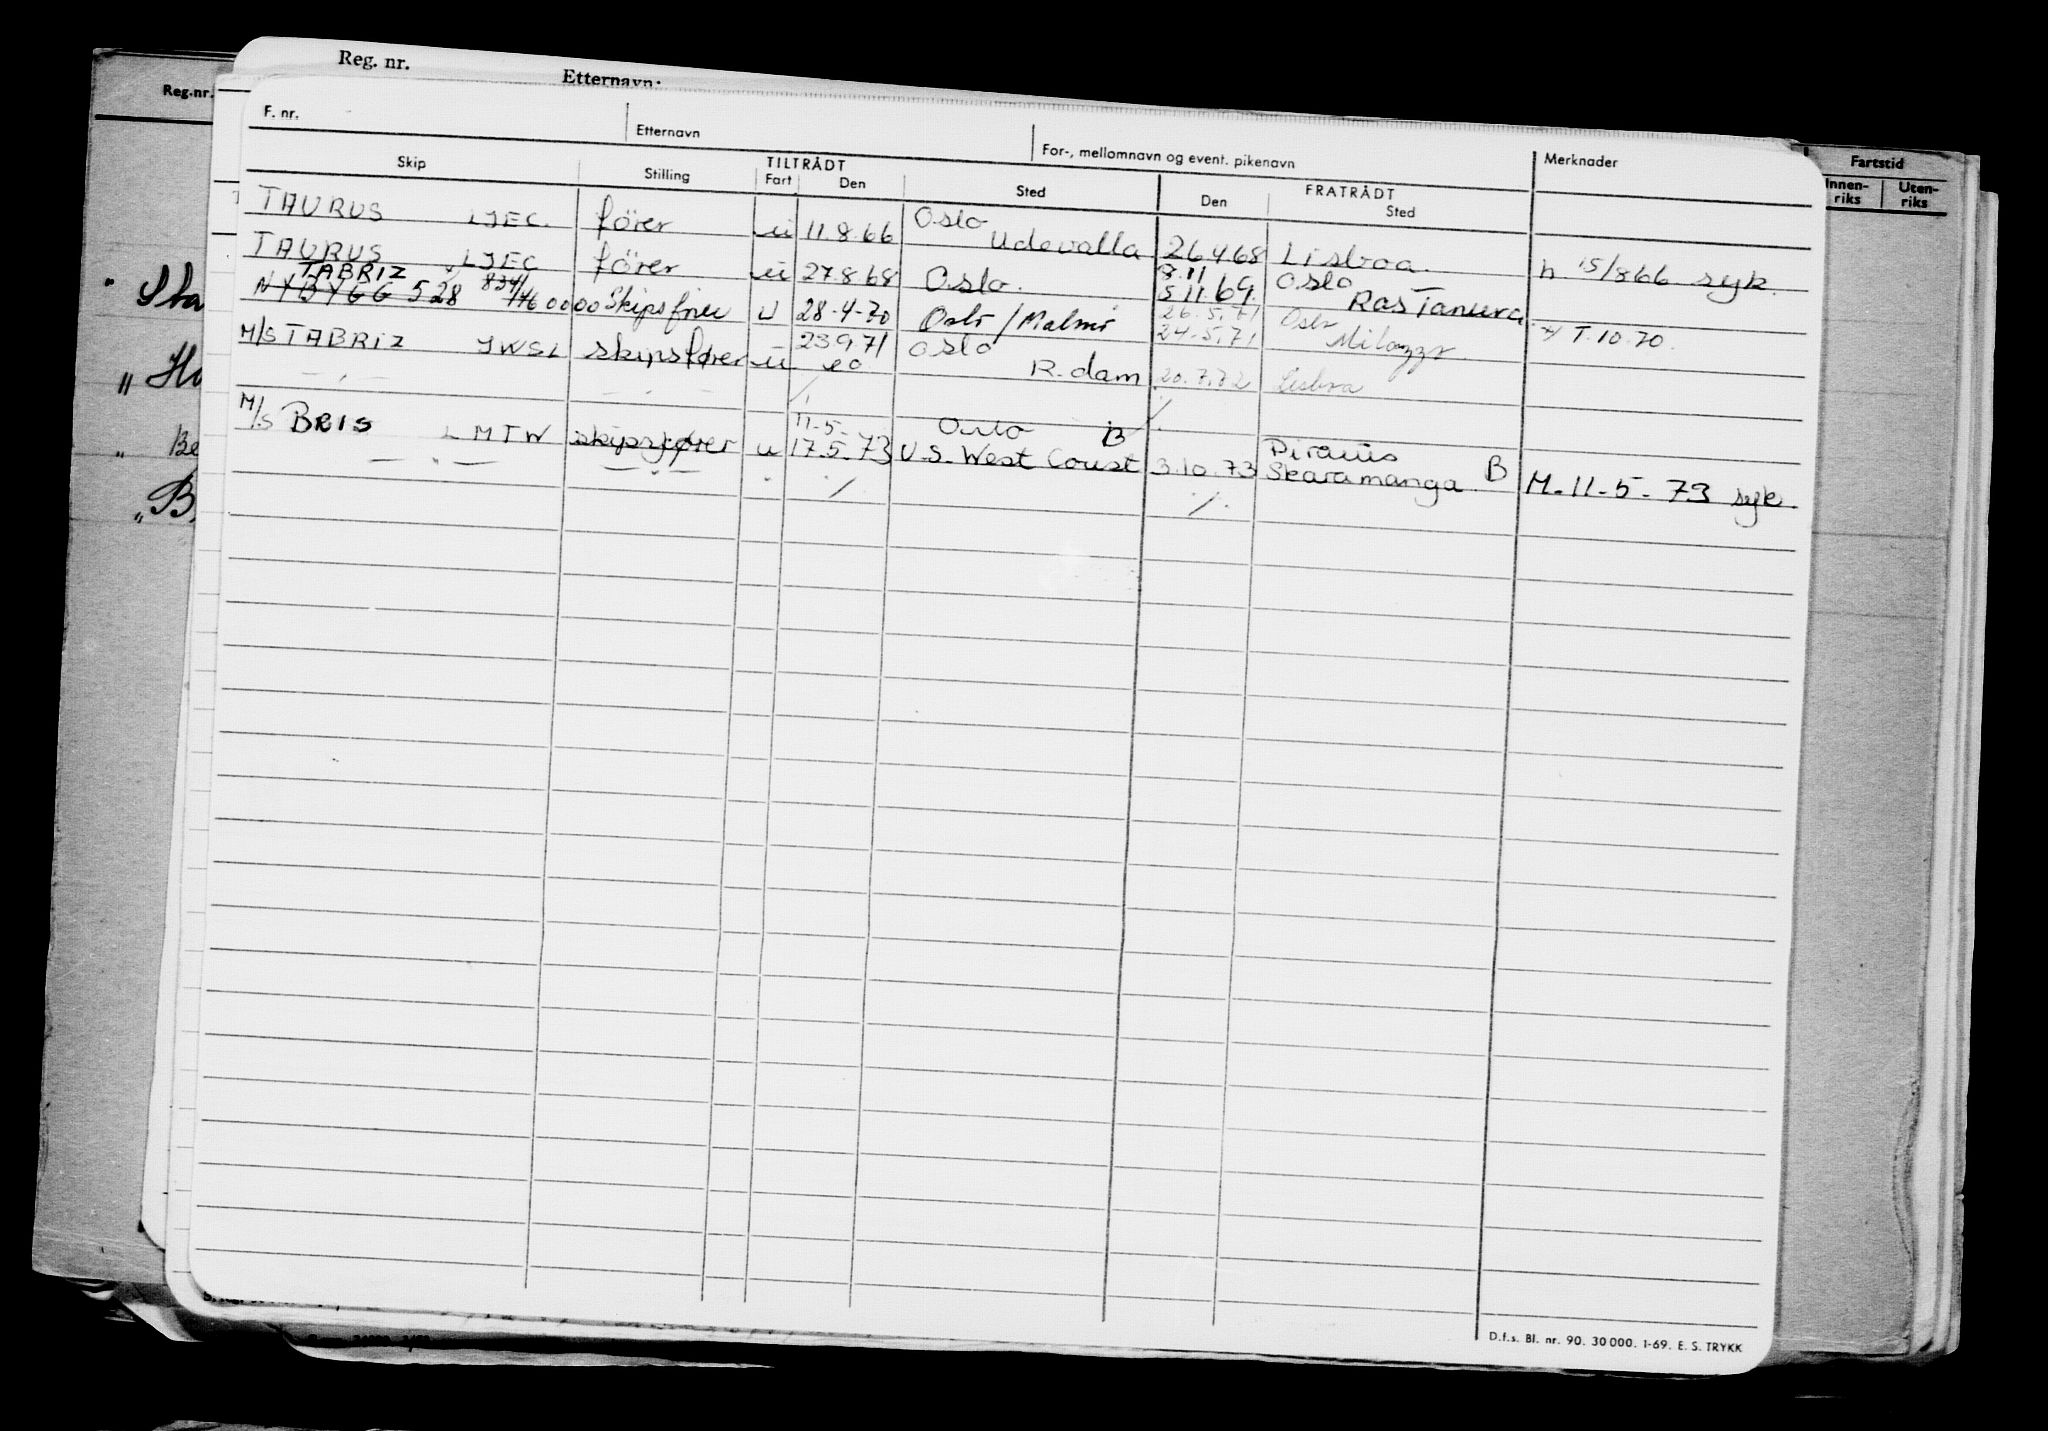 Reg. nr. Etternavn:
Reg.nr.
F. nr. Etternavn For-, mellomnavn og event. pikenavn Merknader Fartstid
Skip Stilling TILTRÅDT FRATRÅDT Innen-riks Uten-riks
Fart Den Sted Den Sted
TAURUS LJEC. fører u 11.8.66 Oslo Udevalla 26468 Lisboa. h 15/866 syk.
TAURUS LJEC fører u 27.8.68 Oslo. 8.11 5.11.69. Oslo Ras Tanura
TABRIZ
NYBYGG 528 834/46 0000 Skipsfører u 28-4-70 Oslo/Malmö 26.5.71 24-5.71 Oslo Milazzo T.10.70.
M/S TABRIZ JWSL skipsfører u 23971 Oslo R.dam 20.7.72 Lisboa
M/S BRIS LMTW skipsfører u 11-5- 17.5.73 Oslo B U.S. West Coust 3.10.73 Piraüs Skaramanga. B M. 11-5-73 syk.
D.f.s. Bl. nr. 90. 30000. 1-69. E. S. TRYKK